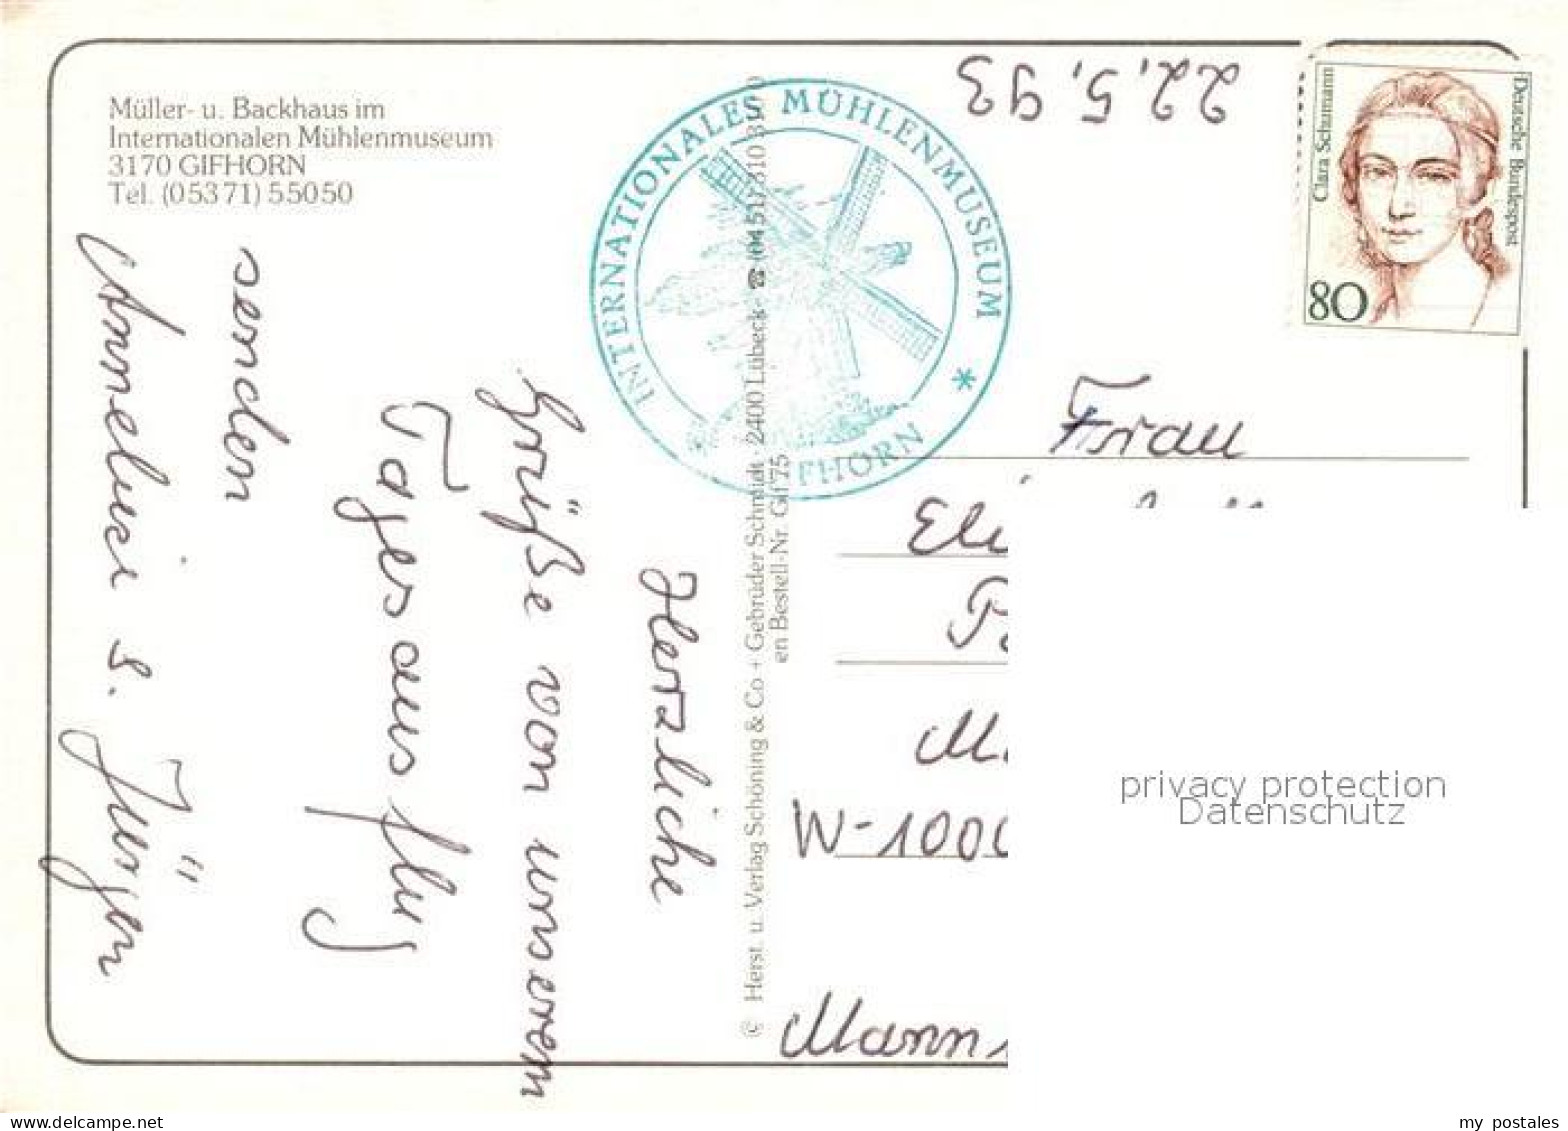 Müller- u. Backhaus im
Internationalen Mühlenmuseum
3170 GIFHORN
Tel. (05371) 55050
Herzliche
Grüße von unserem
Tagesausflug
senden
Anneluci s. Jürgen
INTERNATIONALES MÜHLENMUSEUM *
GIFHORN
© Herst. u. Verlag Schöning & Co + Gebrüder Schmidt · 2400 Lübeck · ☎ (0451)
en Bestell-Nr. Gif 75
22.5.93
Clara Schumann
Deutsche Bundespost
80
Frau
Eli
W-1000
Mann
privacy protection
Datenschutz
my postales